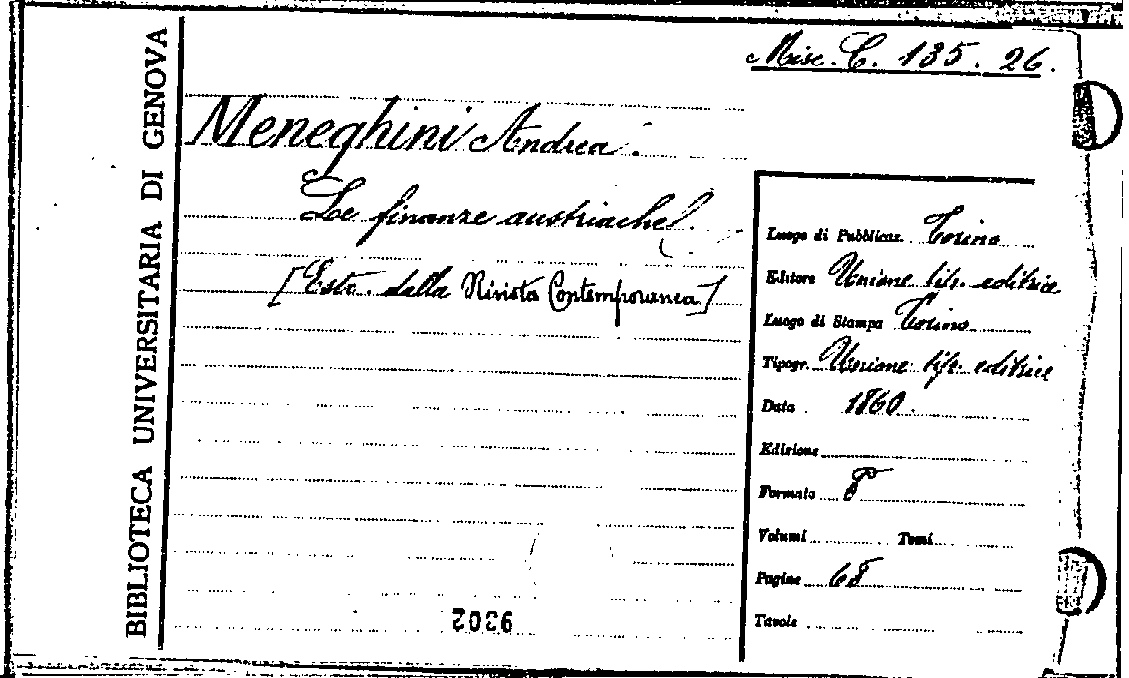 BIBLIOTECA UNIVERSITARIA DI GENOVA
Misc. C. 135. 26.
Meneghini Andrea.
Le finanze austriache.
[Estr. dalla Rivista Contemporanea]
Luogo di Pubblicaz. Torino
Editore Unione tip. editrice
Luogo di Stampa Torino
Tipogr. Unione tip. editrice
Data 1860.
Edizione
Formato 8°
Volumi Tomi
Pagine 68
Tavole